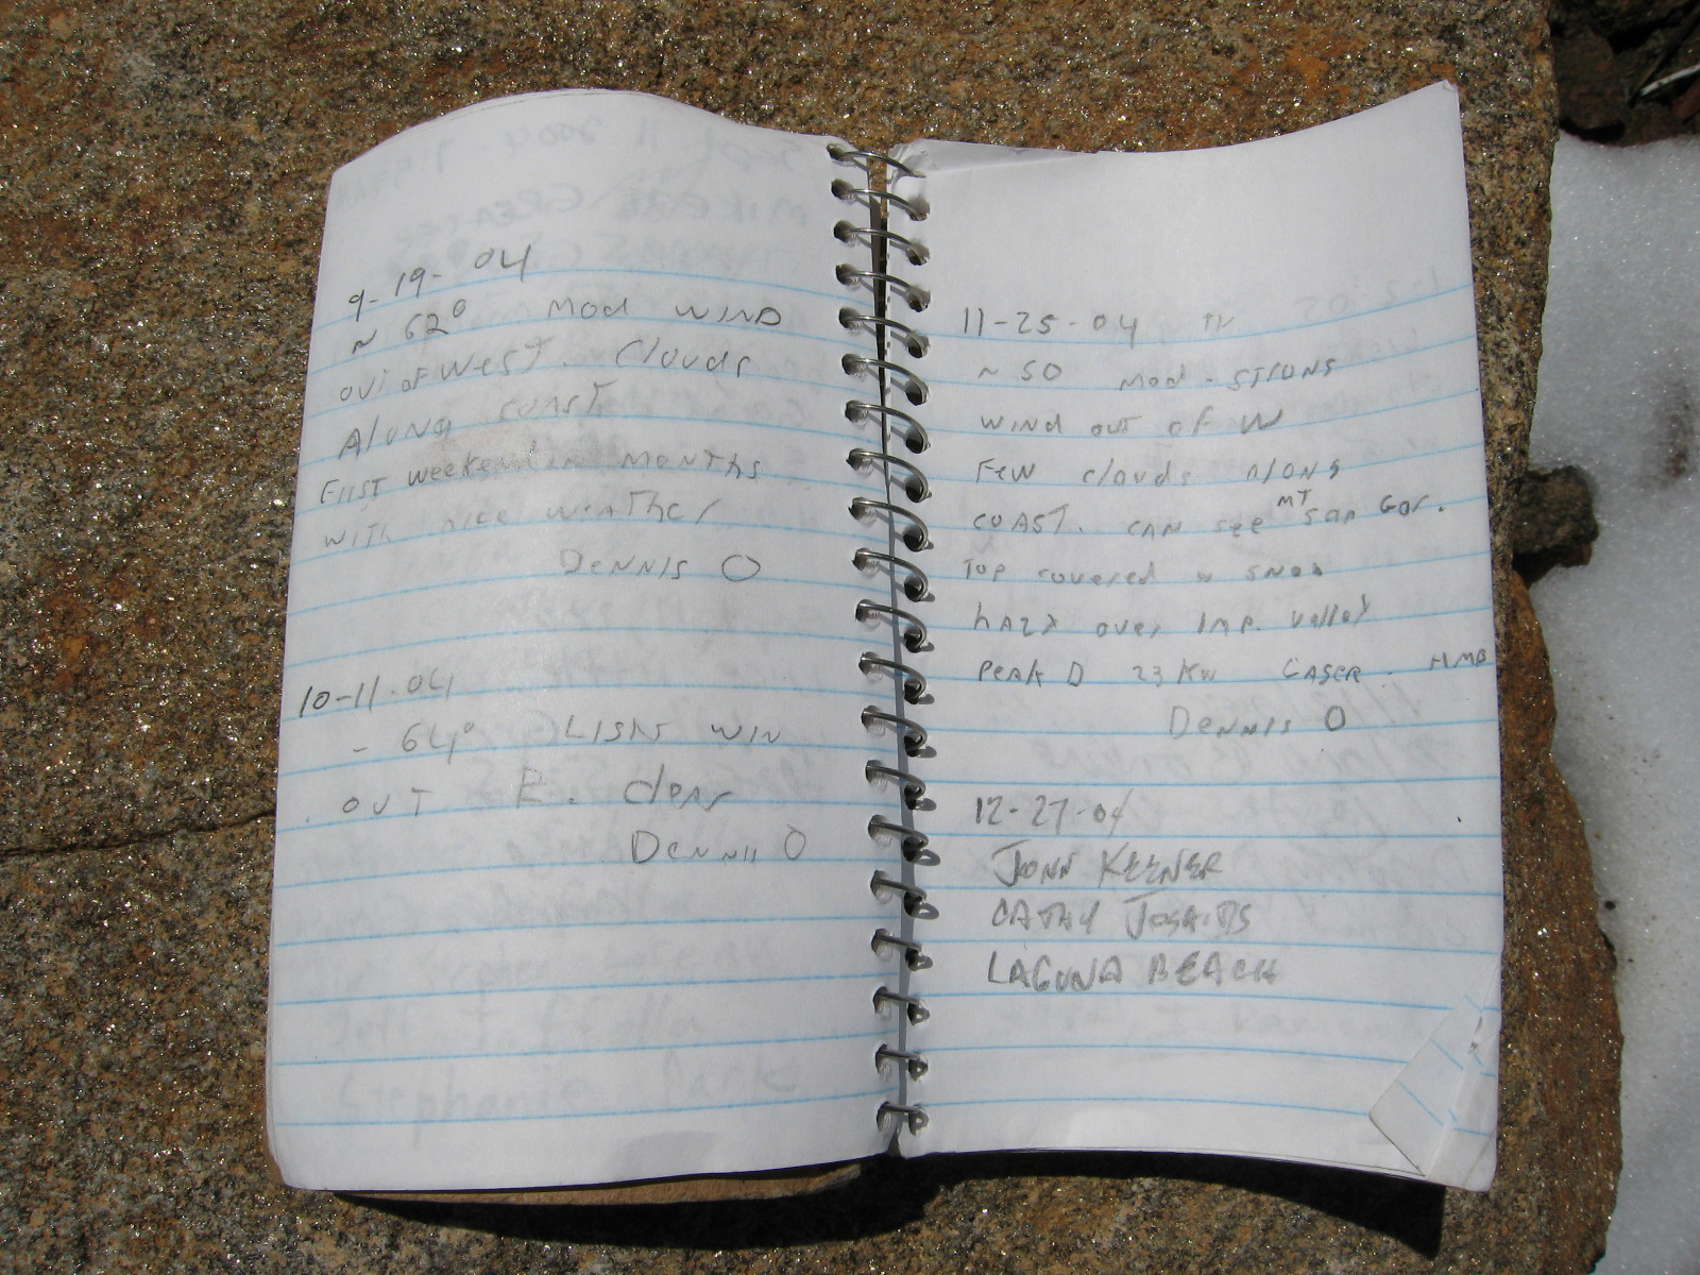 9-19-04
~ 62° MOD WIND
OUT OF WEST. Clouds
Along COAST
FIRST weekend in MONTHS
WITH nice WEATHER
DENNIS O
10-11-04
~ 64° LIGHT WIN
OUT E. clear
DENNIS O
11-25-04 TH
~ 50 MOD-STRONG
WIND OUT OF W
FEW clouds along
COAST. CAN see MT San Gor.
TOP covered w snow
hazy over Imp. valley
Peak D 23 KW LASER. HMB
DENNIS O
12-27-04
JOHN KEENER
CATHY
LAGUNA BEACH